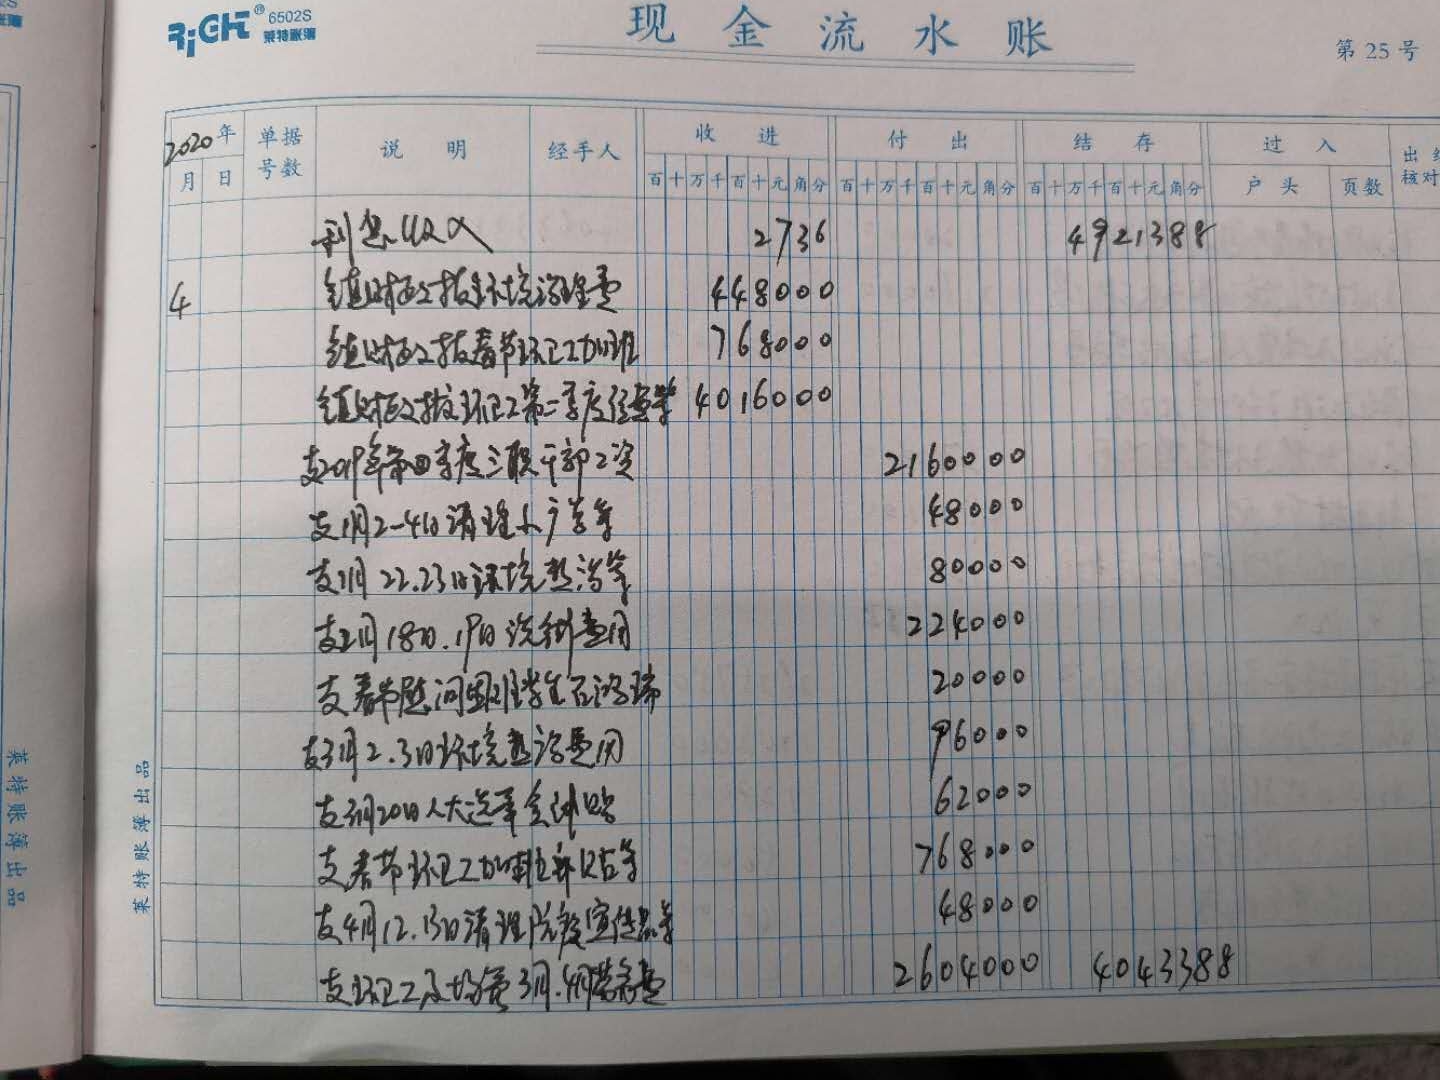 RiGHT® 6502S
莱特账簿
现金流水账
第 25 号
2020年 单据号数 说明 经手人 收进 付出 结存 过入
月 日 百十万千百十元角分 百十万千百十元角分 百十万千百十元角分 户头 页数
利息收入 2736 4921388
4 镇财政拨环境治理费 448000
镇财政拨春节环卫工加班 768000
镇财政拨环卫工第二季度经费等 4016000
支2019年第四季度三职干部工资 2160000
支1月2-4日清理小广告等 48000
支1月22.23日环境整治等 80000
支2月18日.19日洗街费用 224000
支春节慰问困难学生石鸿瑞 20000
支3月2.3日环境整治费用 96000
支3月20日人大选举会议 62000
支春节环卫工加班补贴等 768000
支4月12.13日清理防疫宣传品等 48000
支环卫工及垃圾 3月.4月劳务费 2604000 4043388
莱特账簿出品
英特账簿出品